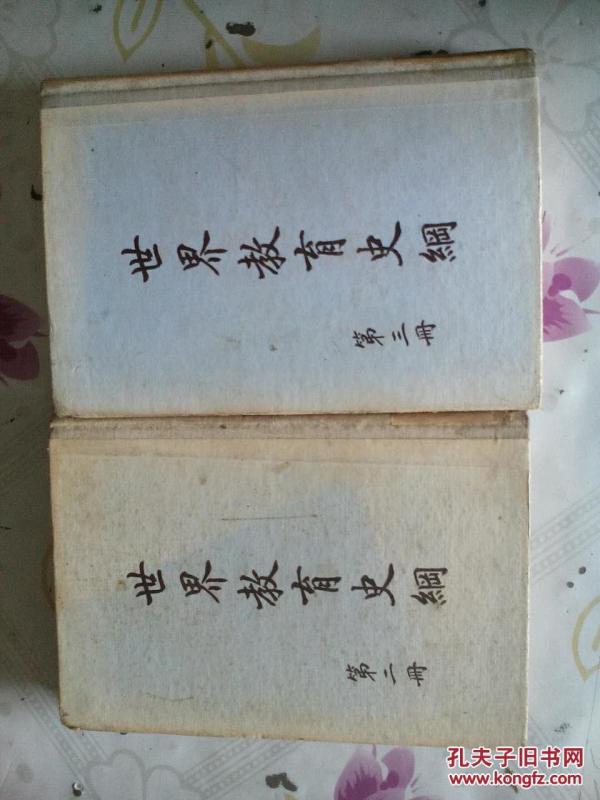 世界教育史綱
第三冊
世界教育史綱
第二冊
孔夫子旧书网
www.kongfz.com